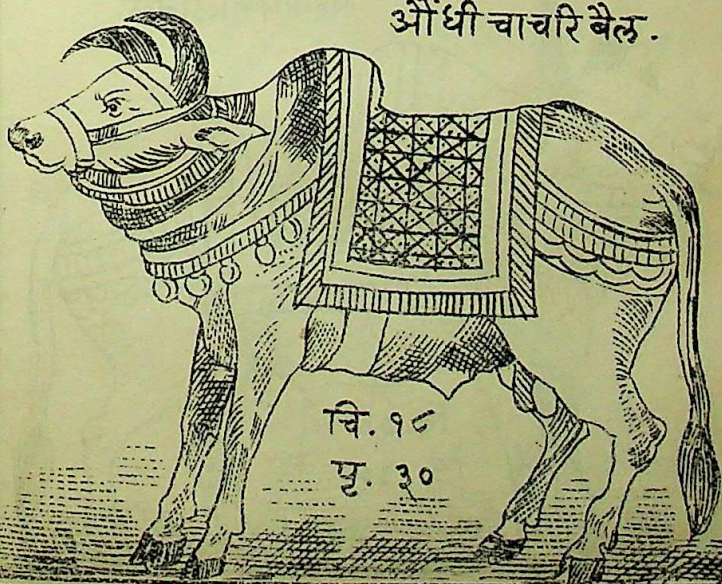 औंधी चाचरि बैल.
चि. १८
पृ. ३०